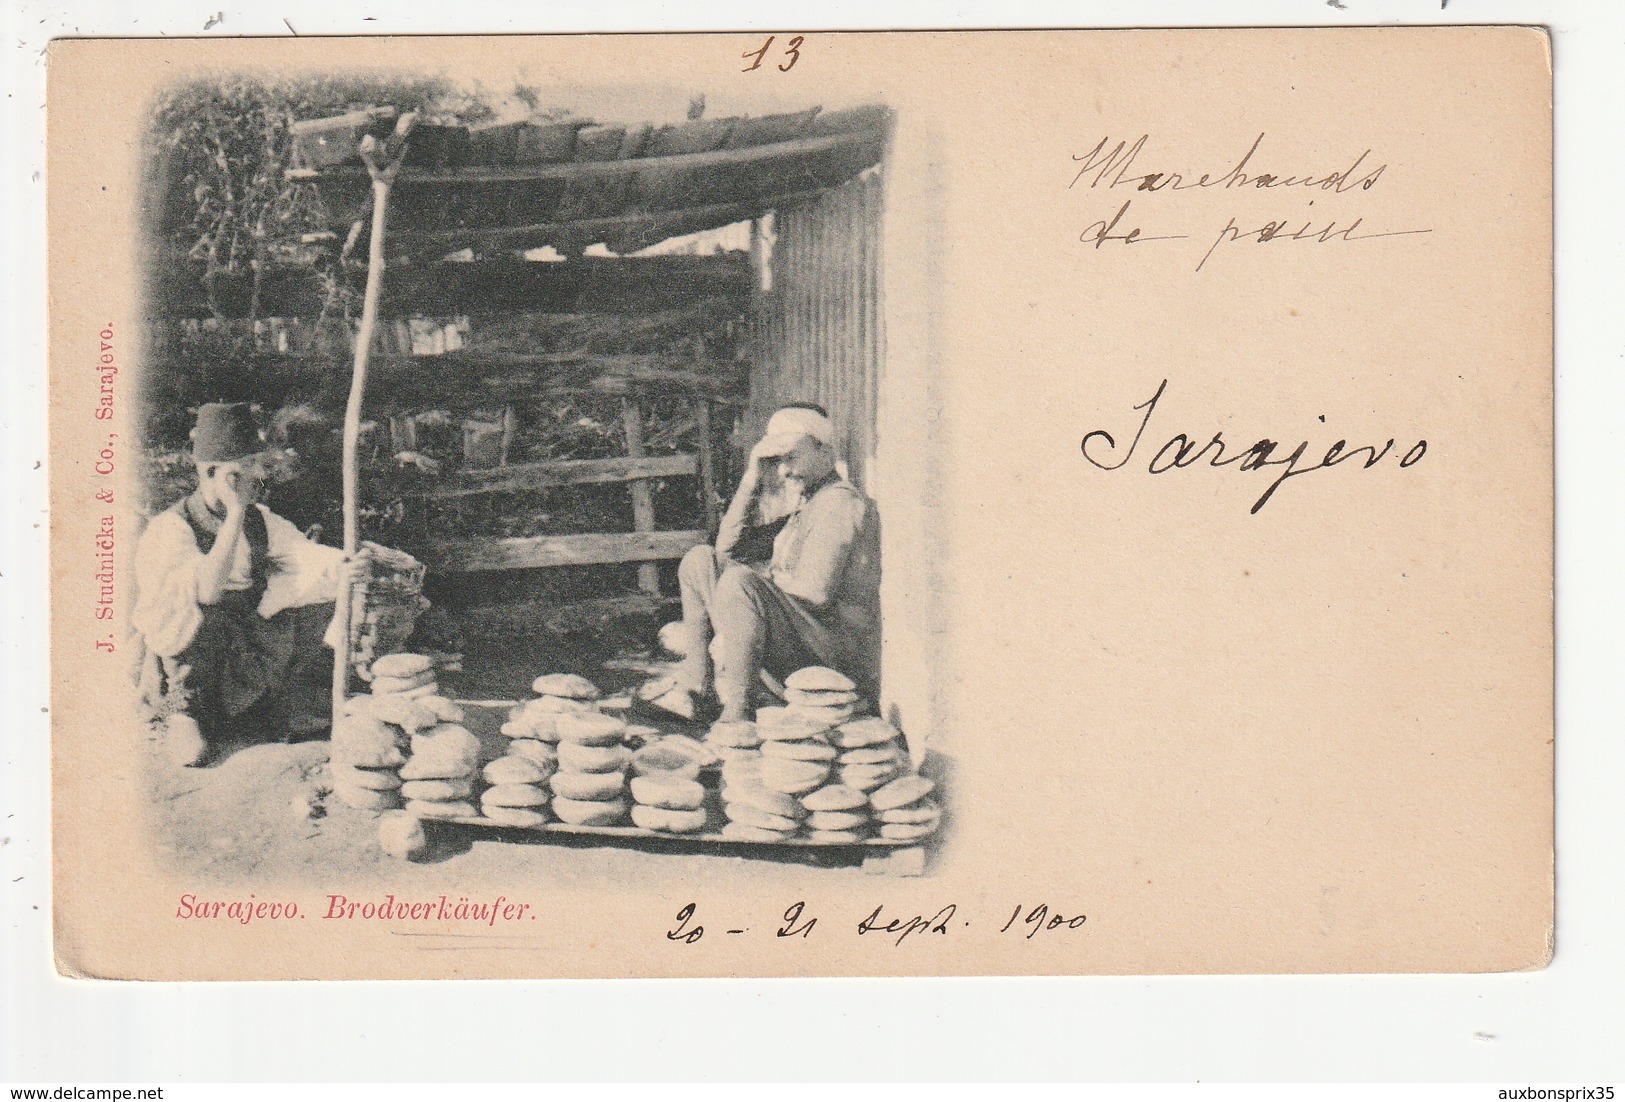 13
Marchands
de pain
Sarajevo
J. Studnička & Co., Sarajevo.
Sarajevo. Brodverkäufer.
20 - 21 sept. 1900
delcampe.net
auxbonsprix35